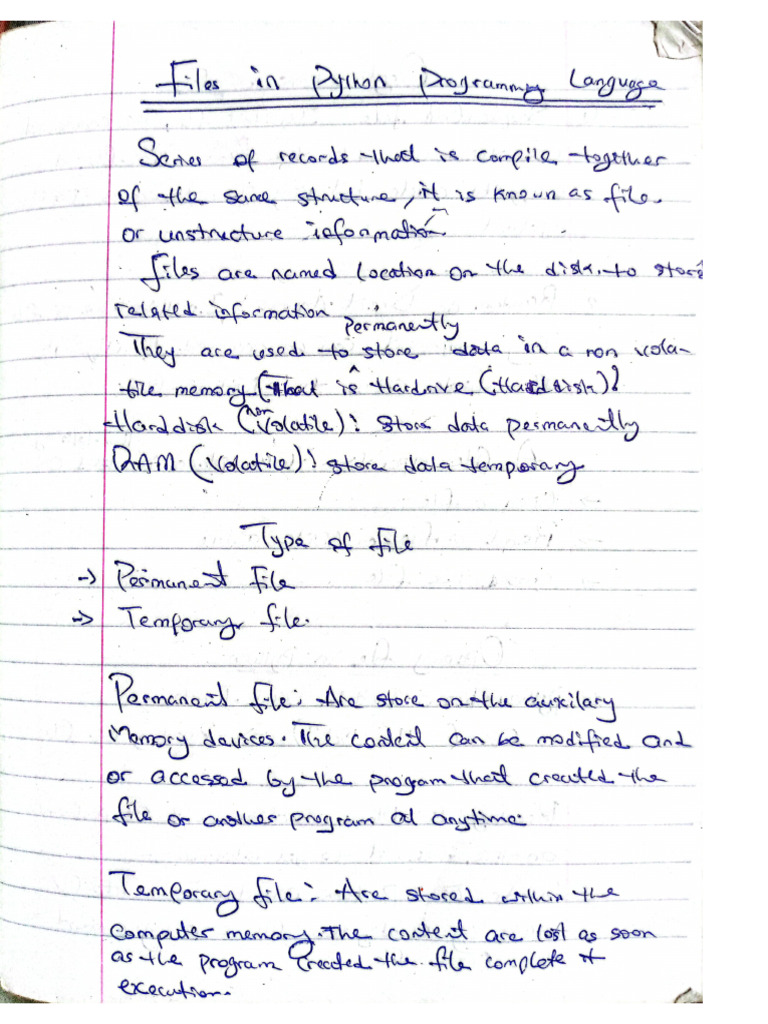 Files in Python Programming Language
Series of records that is compile together
of the same structure, it is known as file.
or unstructure information
files are named location on the disk to store
related information
permanently
They are used to store data in a non vola-
tile memory (That is Hardrive (Harddisk)!
Harddisk (non volatile): store data permanently
RAM (Volatile): store data temporary
Type of file
-> Permanent File
-> Temporary file.
Permanent file: Are store on the auxilary
Memory devices. The content can be modified and
or accessed by the program that created the
file or another program at anytime.
Temporary file: Are stored within the
Computer memory. The content are lost as soon
as the program created the file complete it
execution.